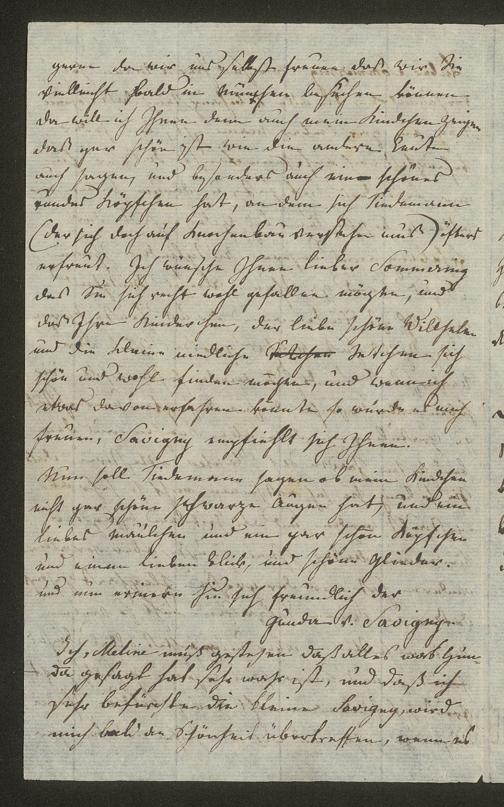 gerne da wir uns selbst freuen das wir Sie
vielleicht bald in München besuchen können
da will ich Ihnen denn auch mein Kindchen zeigen
das gar schön ist wie die andern Leute
auch sagen, und besonders auch ein schönes
rundes Köpfchen hat, an dem sich Tiedemann
(der sich doch auf Knochenbau verstehen mus) öfters
erfreut. Ich wünsche Ihnen lieber Sömmering
das Sie sich recht wohl gefallen mögten, und
das Ihre Kinderchen, der liebe schöne Wilhelm
und die kleine niedliche Setchen sich
schön und wohl finden mögten, und wenn ich
etwas davon erfahren könnte so würde es mich
freuen, Savigny empfiehlt sich Ihnen.
Nun soll Tiedemann sagen ob mein Kindchen
nicht gar schöne schwarze Augen hat, und ein
liebes Mäulchen und ein gar schön Köpfchen
und einen lieben Blick, und schöne Glieder.
und nun erinnern Sie sich freundlich der
Gunda v. Savigny.
Ich, Meline muß gestehen daß alles was Gun-
da gesagt hat sehr wahr ist, und daß ich
sehr befürchte die kleine Savigny, wird
mich bald an Schönheit übertreffen, wenn es